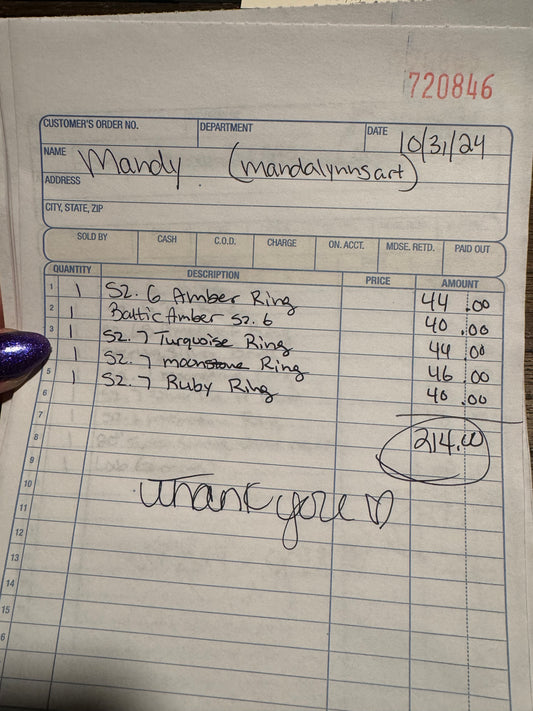 720846
CUSTOMER'S ORDER NO. DEPARTMENT DATE 10/31/24
NAME Mandy (mandalynnsart)
ADDRESS
CITY, STATE, ZIP
SOLD BY CASH C.O.D. CHARGE ON. ACCT. MDSE. RETD. PAID OUT
QUANTITY DESCRIPTION PRICE AMOUNT
1 1 SZ. 6 Amber Ring 44.00
2 1 Baltic Amber SZ. 6 40.00
3 1 SZ. 7 Turquoise Ring 44.00
1 SZ. 7 moonstone Ring 46.00
5 1 SZ. 7 Ruby Ring 40.00
6
7 214.00
8
9
10 Thank you ♡
11
12
13
14
15
6